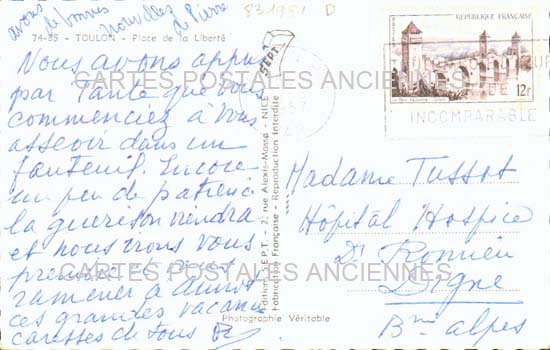 avons
de bonnes nouvelles
de Pierre
831951 D
74-85 - TOULON - Place de la Liberté
Nous avons appris
par Tante que vous
commenciez à vous
asseoir dans un
fauteuil. Encore
un peu de patience
la guérison viendra
et nous irons vous
prendre
ramener à Annot
ces grandes vacances
caresses de tous
Edition S.E.P.T. - 2, rue Alexis-Mossa - NICE
Fabrication Française - Reproduction Interdite
SEPT
Photographie Véritable
RÉPUBLIQUE FRANÇAISE
12f
INCOMPARABLE
Madame Tussot
Hôpital Hospice
Dr Romieu
Digne
Bses alpes
CARTES POSTALES ANCIENNES
CARTES POSTALES ANCIENNES